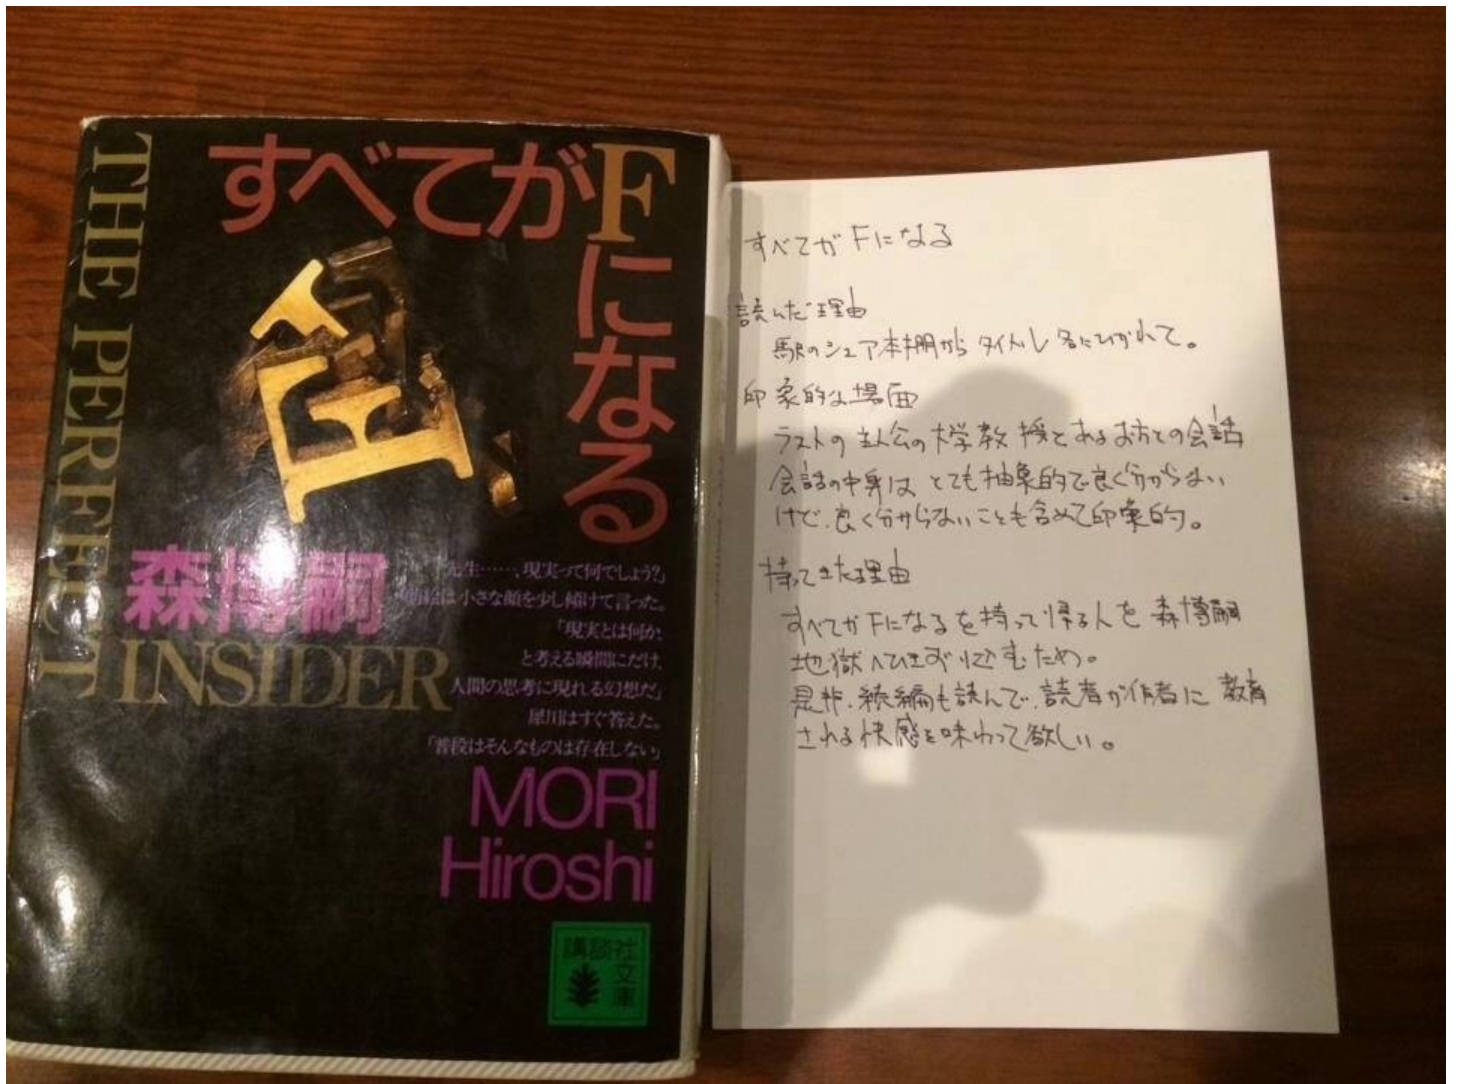 すべてがFになる
THE PERFECT
INSIDER
森博嗣
「先生……、現実って何でしょう?」
萌絵は小さな顔を少し傾けて言った。
「現実とは何か、
と考える瞬間にだけ、
人間の思考に現れる幻想だ」
犀川はすぐ答えた。
「普段はそんなものは存在しない」
MORI
Hiroshi
講談社
文庫
すべてがFになる
読んだ理由
駅のシェア本棚から タイトル名にひかれて。
印象的な場面
ラストの主人公の大学教授とあるお方との会話
会話の中身は とても抽象的で良く分からない
けど、良く分からないことも含めて印象的。
持ってきた理由
すべてがFになるを持って帰る人を 森博嗣
地獄へひきずり込むため。
是非、続編も読んで、読者が作者に 教育
される快感を味わって欲しい。